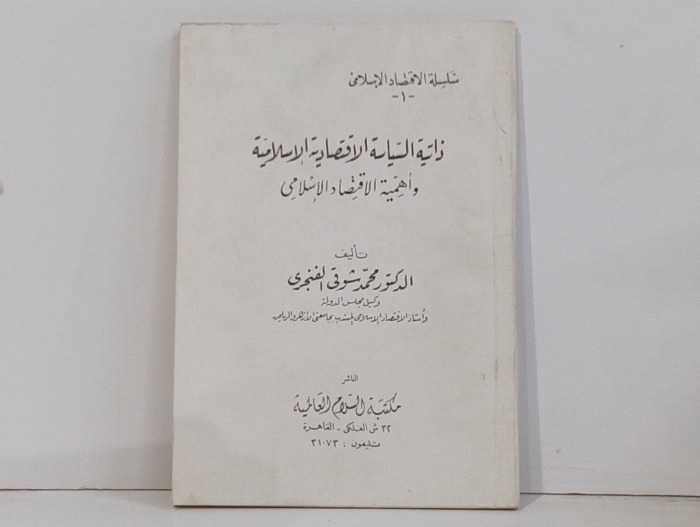 سلسلة الاقتصاد الإسلامى
-١-
ذاتية السياسة الاقتصادية الإسلامية
وأهمية الاقتصاد الإسلامى
تأليف
الدكتور محمد شوقى الفنجرى
وكيل مجلس الدولة
وأستاذ الاقتصاد الإسلامى المنتدب بجامعتى الأزهر والرياض
الناشر
مكتبة السلام العالمية
٣٢ ش الفلكى - القاهرة
تليفون : ٣١٠٧٣